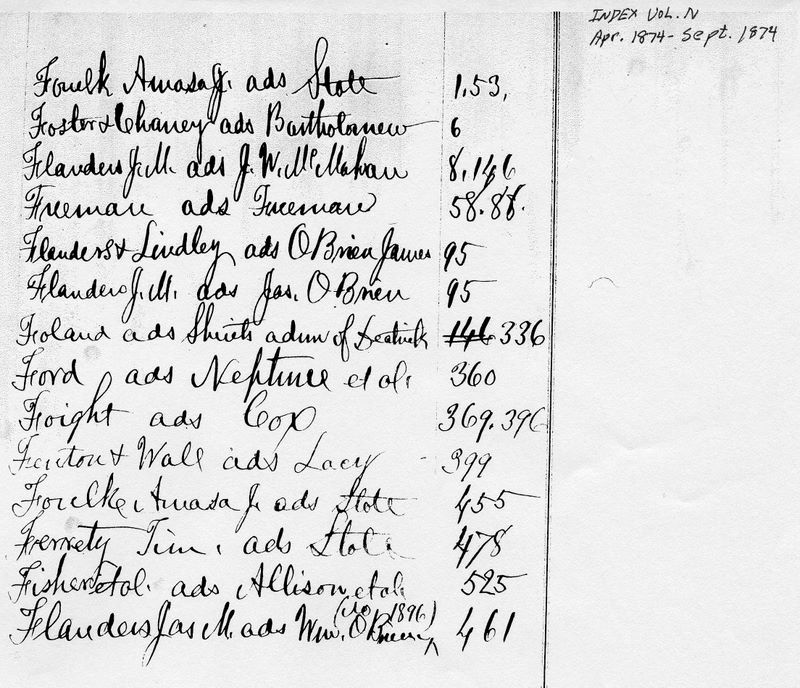 INDEX VOL. N
Apr. 1874 - Sept. 1874
Foulk Amasa J. ads State 1, 53,
Foster & Chaney ads Bartholomew 6
Flanders J. M. ads J. W. McMahan 8, 146
Freeman ads Freeman 58. 88.
Flanders & Lindley ads O Brien James 95
Flanders J. M. ads Jas. O Brien 95
Foland ads Shirts admr of 146 336
Ford ads Neptune et al. 360
Foight ads Cox 369. 396
Fenton & Wall ads Lacy 399
Foulke, Amasa J. ads State 455
Ferrety Tim. ads State 478
Fisher et al. ads Allison et al 525
Flanders Jas M. ads Wm. O Brien (No 1896) 461